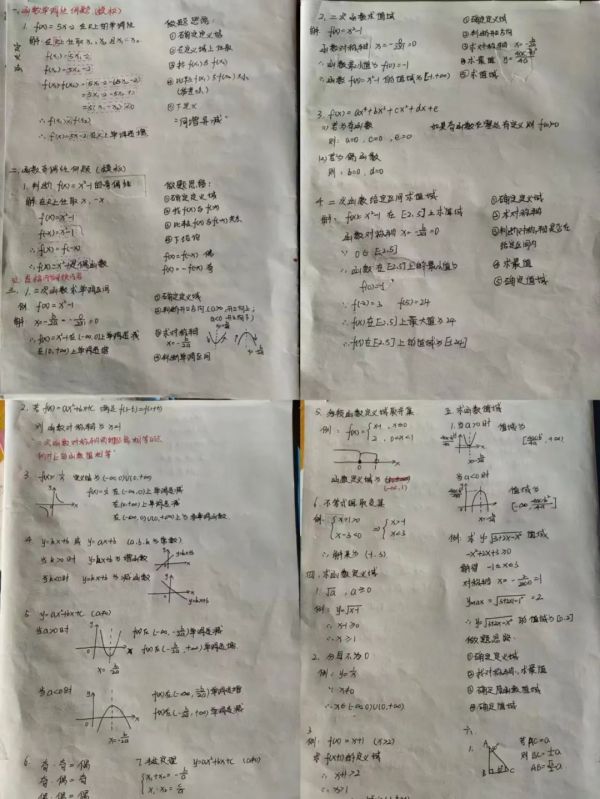 一、函数单调性例题(模板)
1. f(x)=5x-2 在R上的单调性
解:在R上任取 x₁, x₂ 且 x₁<x₂
定义法
f(x₁)=5x₁-2
f(x₂)=5x₂-2
f(x₁)-f(x₂)=5x₁-2-(5x₂-2)
=5x₁-2-5x₂+2
=5(x₁-x₂)<0
∴f(x₁)<f(x₂)
∴f(x)=5x-2 在R上单调递增
做题思路:
①确定定义域
②在定义域上任取
③求f(x₁)与f(x₂)
④比较f(x₁)与f(x₂)大小
(作差法)
⑤下定义
"同增异减"
二、函数奇偶性例题(模板)
1. 判断 f(x)=x²-1的奇偶性
解:在R上任取x, -x
f(x)=x²-1
f(-x)=x²-1
∴f(x)=f(-x)
∴f(x)=x²-1是偶函数
做题思路:
①确定定义域
②求f(x)与f(-x)
③比较f(x)与f(-x)关系
④下结论
f(x)=f(-x) 偶
f(x)=-f(-x) 奇
三、1.二次函数求单调区间
例 f(x)=x²-1
解 x=-b/2a=-0/2×1=0
∴f(x)=x²-1在(-∞,0)上单调递减
在(0,+∞)上单调递增
①确定定义域
②判断开口方向(a>0,开口向上;
a<0 开口向下)
③求对称轴
x=-b/2a
④判断单调区间
2. 二次函数求值域
解 f(x)=x²-1
函数对称轴 x=-0/2×1=0
∴函数最小值为 f(0)=-1
∴函数f(x)=x²-1 的值域为[-1,+∞)
①确定定义域
②判断开口方向
③求对称轴 x=-b/2a
④求最值 y=4ac-b²/4a
⑤求值域
3. f(x)=ax⁴+bx³+cx²+dx+e
(1)若为奇函数
则:a=0, c=0, e=0
如果奇函数在原点有定义 则 f(0)=0
(2)若为偶函数
则, b=0, d=0
4. 二次函数给定区间求值域
解: f(x)=x²-1 在 [-2,5]上求值域
函数对称轴 x=-0/2×1=0
∵0∈[-2,5]
∴函数在[-2,5]上的最小值为
f(0)=-1
∵f(-2)=3 f(5)=24
∴f(x)在[-2,5]上最大值为24
∴f(x)在[-2,5]上的值域为[-1,24]
①确定定义域
②求对称轴
③判断对称轴是否在
给定区间内
④求最值
⑤确定值域
2. 若 f(x)=ax²+bx+c 满足
则 函数对称轴为 x=1
3. f(x)=1/x 定义域为(-∞,0)∪(0,+∞)
f(x)=1/x 在(-∞,0)上单调递减
在(0,+∞)上单调递减
在(-∞,0)∪(0,+∞)上为非单调函数
4. y=kx+b 或 y=ax+b (a,b,k为常数)
当k>0时 y=kx+b为增函数
当k<0时 y=kx+b为减函数
5. y=ax²+bx+c (a≠0)
当a>0时
x=-b/2a
f(x)在(-∞,-b/2a)单调递减
f(x)在(-b/2a,+∞)单调递增
当a<0时
x=-b/2a
f(x)在(-∞,-b/2a)单调递增
f(x)在(-b/2a,+∞)单调递减
6. 奇·奇=偶
奇·偶=奇
偶·偶=偶
y=ax²+bx+c (a≠0)
x₁+x₂=-b/a
x₁·x₂=c/a
5. 分段函数定义域取并集
例: f(x)={x+1, x≤0
2, 0<x<1
函数定义域为
(-∞,1)
6. 不等式组取交集
例: {x+1>0
x-3<0
⇒{x>-1
x<3
∴解集为(-1,3)
四、求函数定义域
1. √a, a≥0
例: y=√x-1
∴x-1≥0
∴x≥1
2. 分母不为0
例: y=1/x
∵x≠0
∴x∈(-∞,0)∪(0,+∞)
3.
例: f(x)=x+1 (x>2)
求 f(x+1)的定义域
∴x+1>2
∴x>1
五、求函数值域
1.当a>0时
值域为
[4ac-b²/4a,+∞)
x=-b/2a
当a<0时
值域为
(-∞,4ac-b²/4a]
例: 求 y=√3+2x-x² 值域
-x²+2x+3≥0
解得 -1≤x≤3
对称轴 x=-2/2×(-1)=1
ymax=√3+2x-x²=2
∴y=√3+2x-x² 的值域为[0,2]
做题思路:
①确定定义域
②找对称轴、求最值
④确定值域
六、
1.
A
B
C
若AC=a